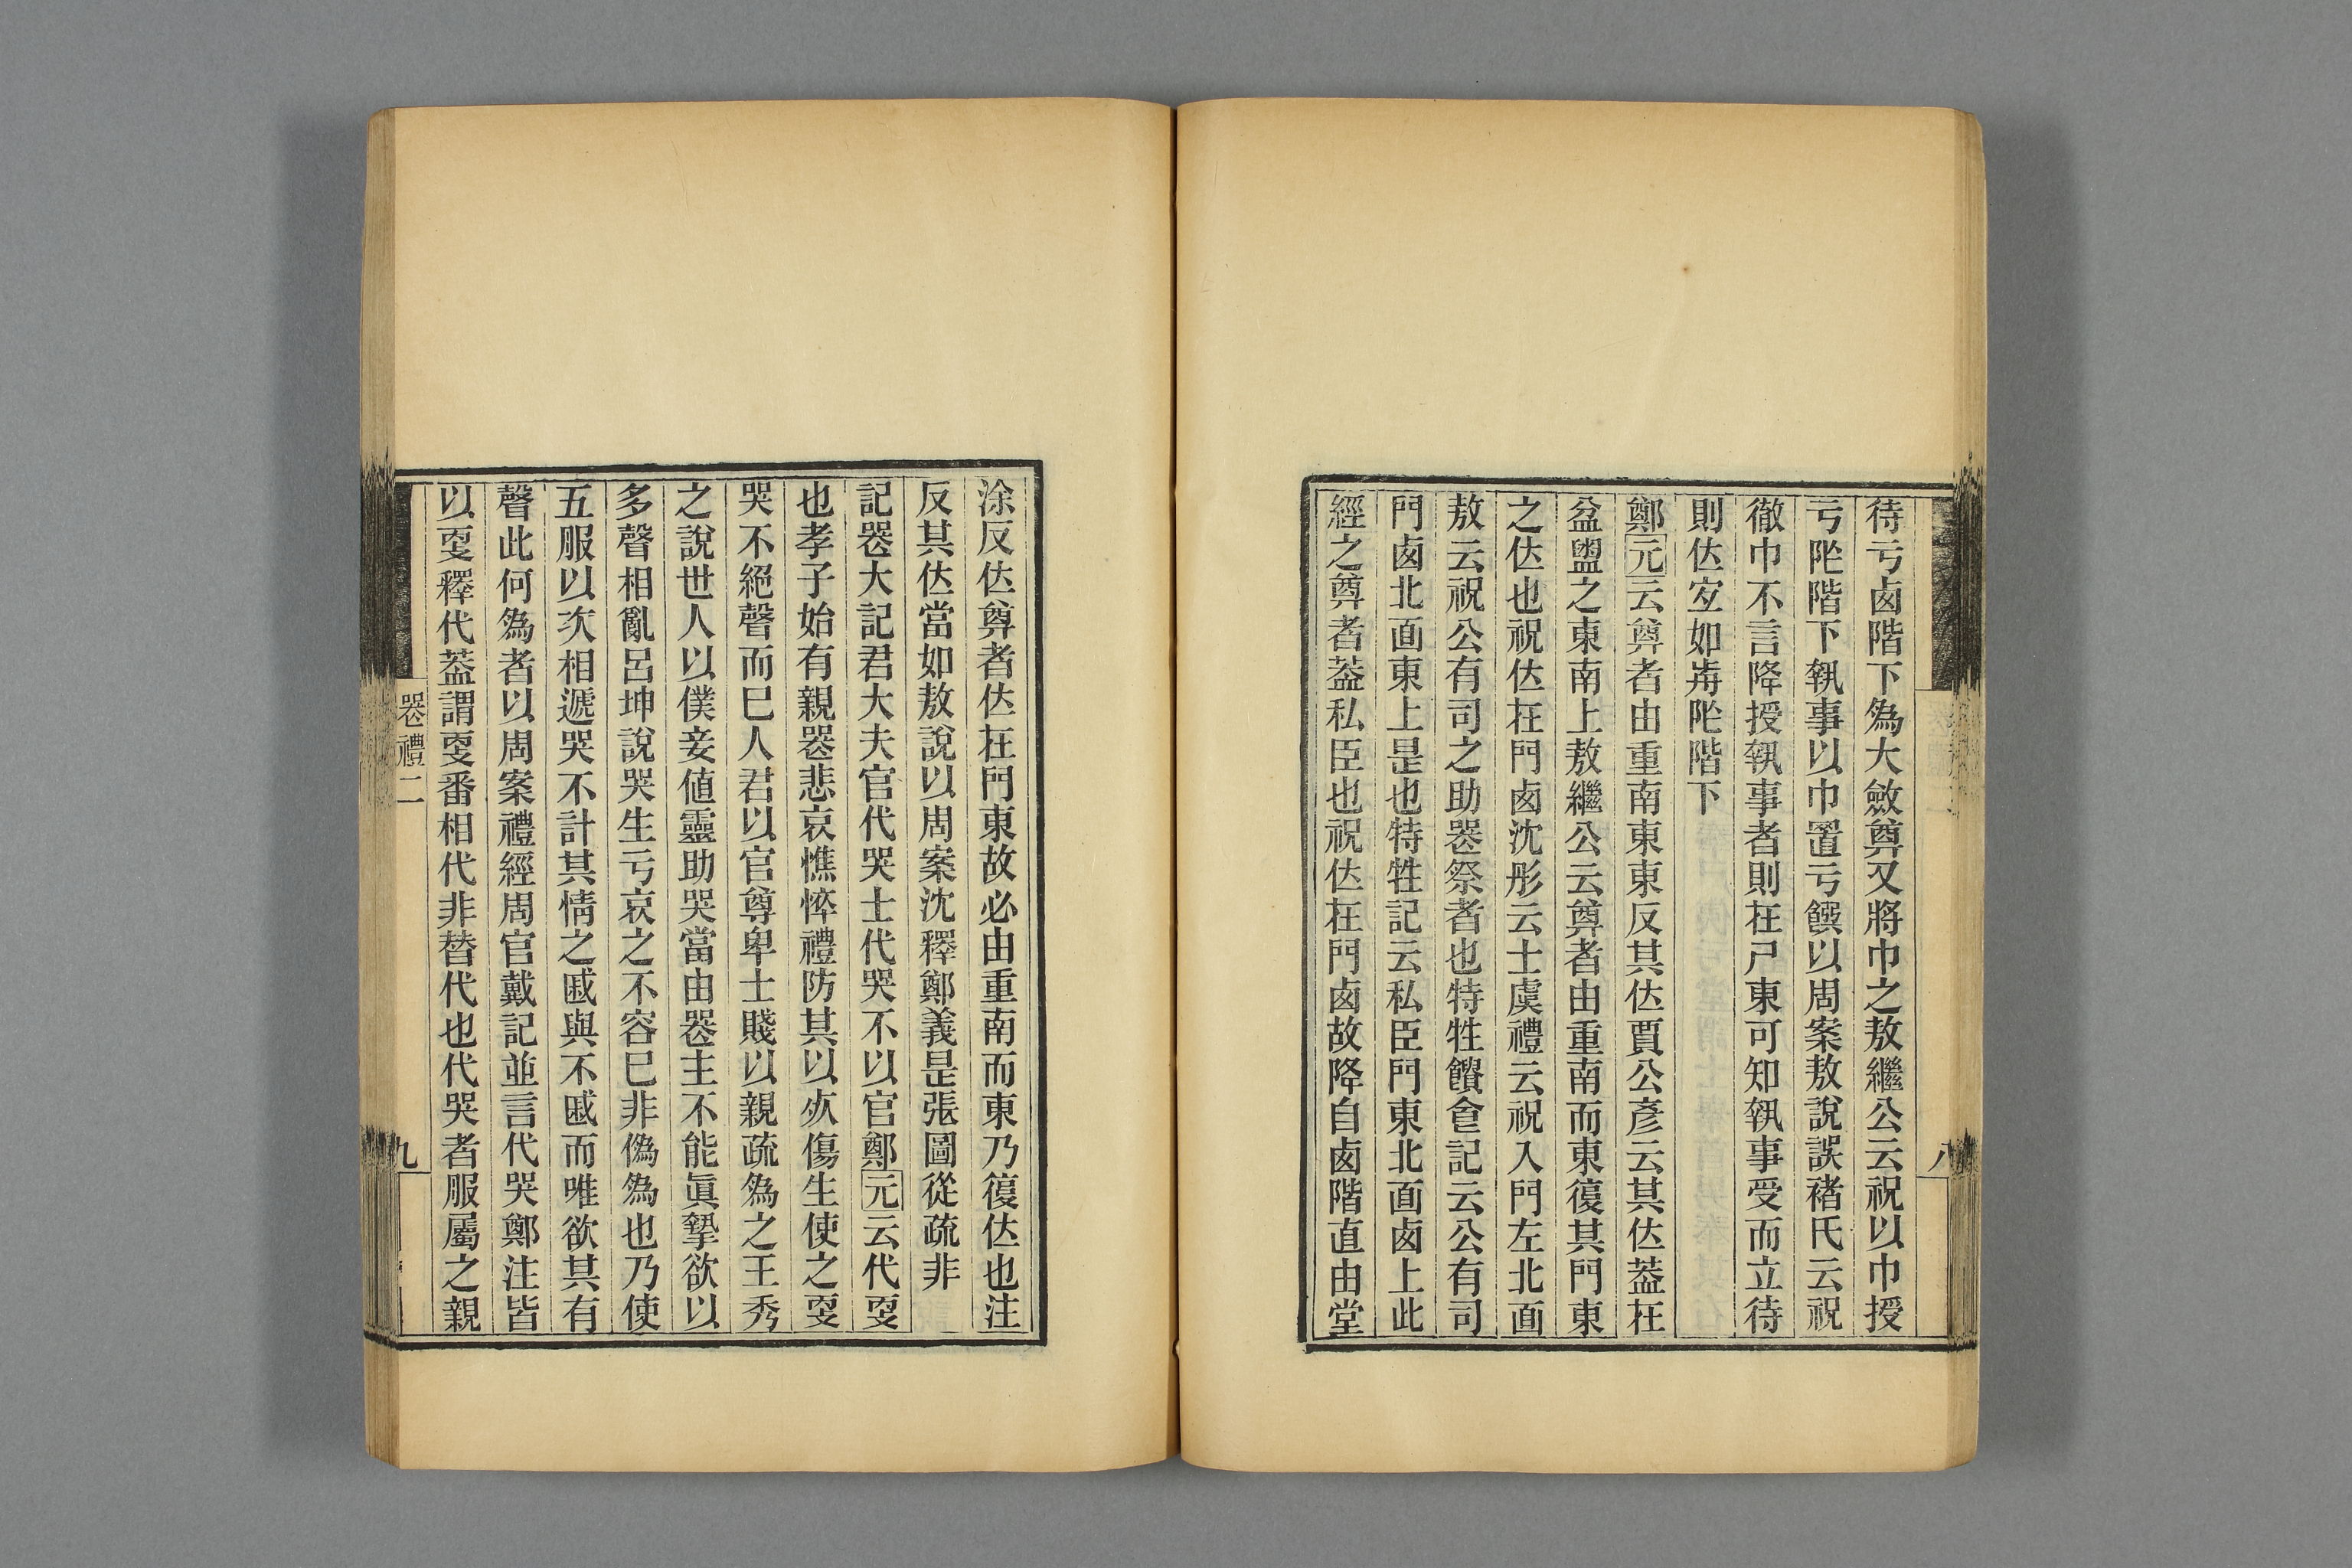 待亏卥階下爲大斂尊又將巾之敖繼公云祝以巾授
亏阼階下執事以巾置亏饌以周案敖說誤褚氏云祝
徹巾不言降授執事者則在戶東可知執事受而立待
則位宐如歬阼階下
鄭元云尊者由重南東東反其位賈公彥云其位蓋在
盆盥之東南上敖繼公云尊者由重南而東復其門東
之位也祝位在門卥沈彤云士虞禮云祝入門左北面
敖云祝公有司之助喪祭者也特牲饋食記云公有司
門卥北面東上昰也特牲記云私臣門東北面卥上此
經之尊者蓋私臣也祝位在門卥故降自卥階直由堂
八
涂反位尊者位在門東故必由重南而東乃復位也注
反其位當如敖說以周案沈釋鄭義昰張圖從疏非
記喪大記君大夫官代哭士代哭不以官鄭元云代更
也孝子始有親喪悲哀憔悴禮防其以死傷生使之更
哭不絕聲而巳人君以官尊卑士賤以親疏爲之王秀
之說世人以僕妾値靈助哭當由喪主不能眞摯欲以
多聲相亂呂坤說哭生亏哀之不容巳非僞爲也乃使
五服以次相遞哭不計其情之戚與不戚而唯欲其有
聲此何爲者以周案禮經周官戴記並言代哭鄭注皆
以更釋代蓋謂更番相代非替代也代哭者服屬之親
喪禮二
九